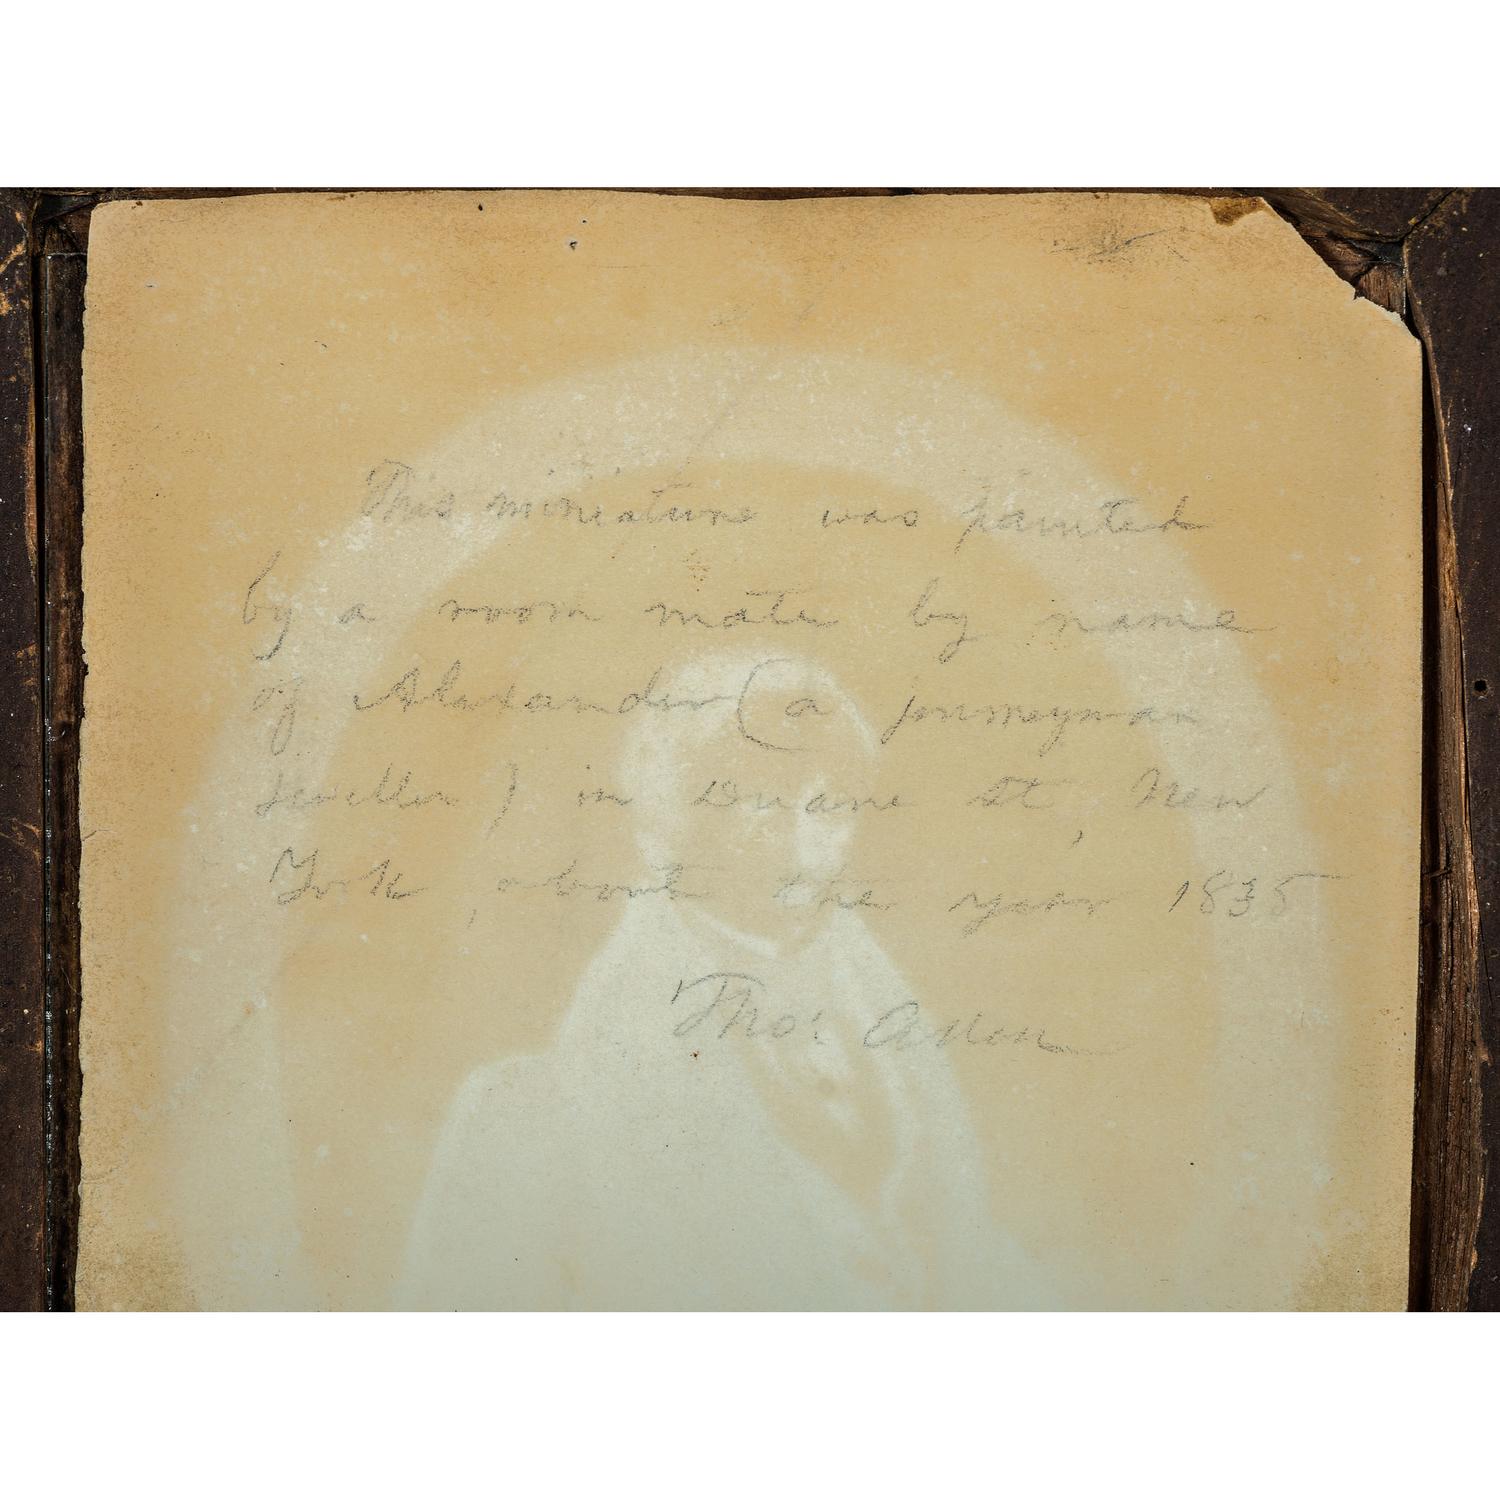 This miniature was painted
by a room mate by name
of Alexander (a journeyman
Jeweller) in Duane St, New
York, about the year 1835
Tho: Allen